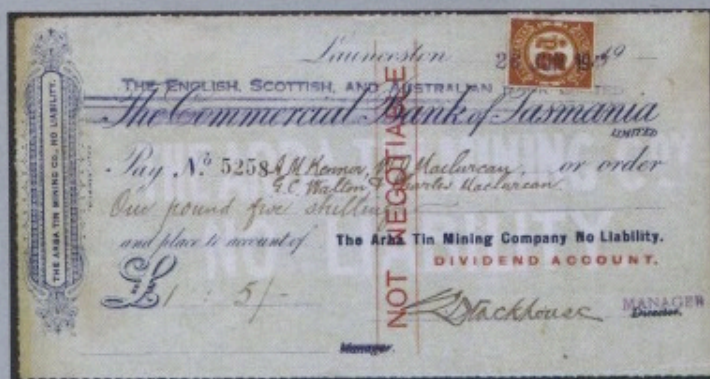 THE ARBA TIN MINING CO. NO LIABILITY.
Launceston
THE ENGLISH, SCOTTISH, AND AUSTRALIAN BANK LIMITED
The Commercial Bank of Tasmania
LIMITED
Pay No. 5258 A M Kennor, Maclurcan, or order
G. C. Walton & Charles Maclurcan.
One pound five shillings
and place to account of The Arba Tin Mining Company No Liability.
DIVIDEND ACCOUNT.
£1 : 5/-
Stackhouse MANAGER
Director.
Manager.
NOT NEGOTIABLE